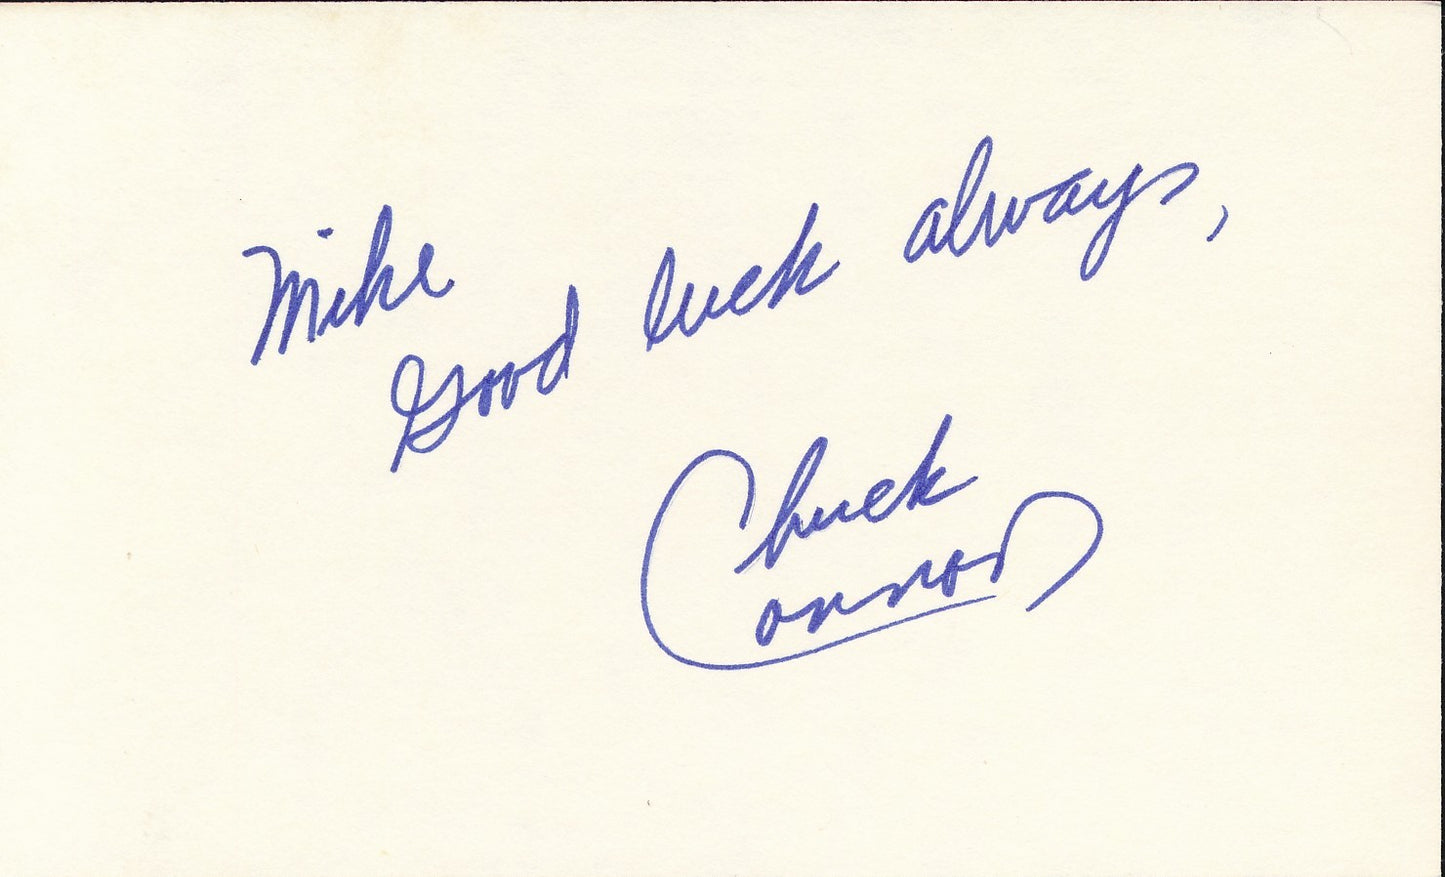 Mike
Good luck always,
Chuck
Connors